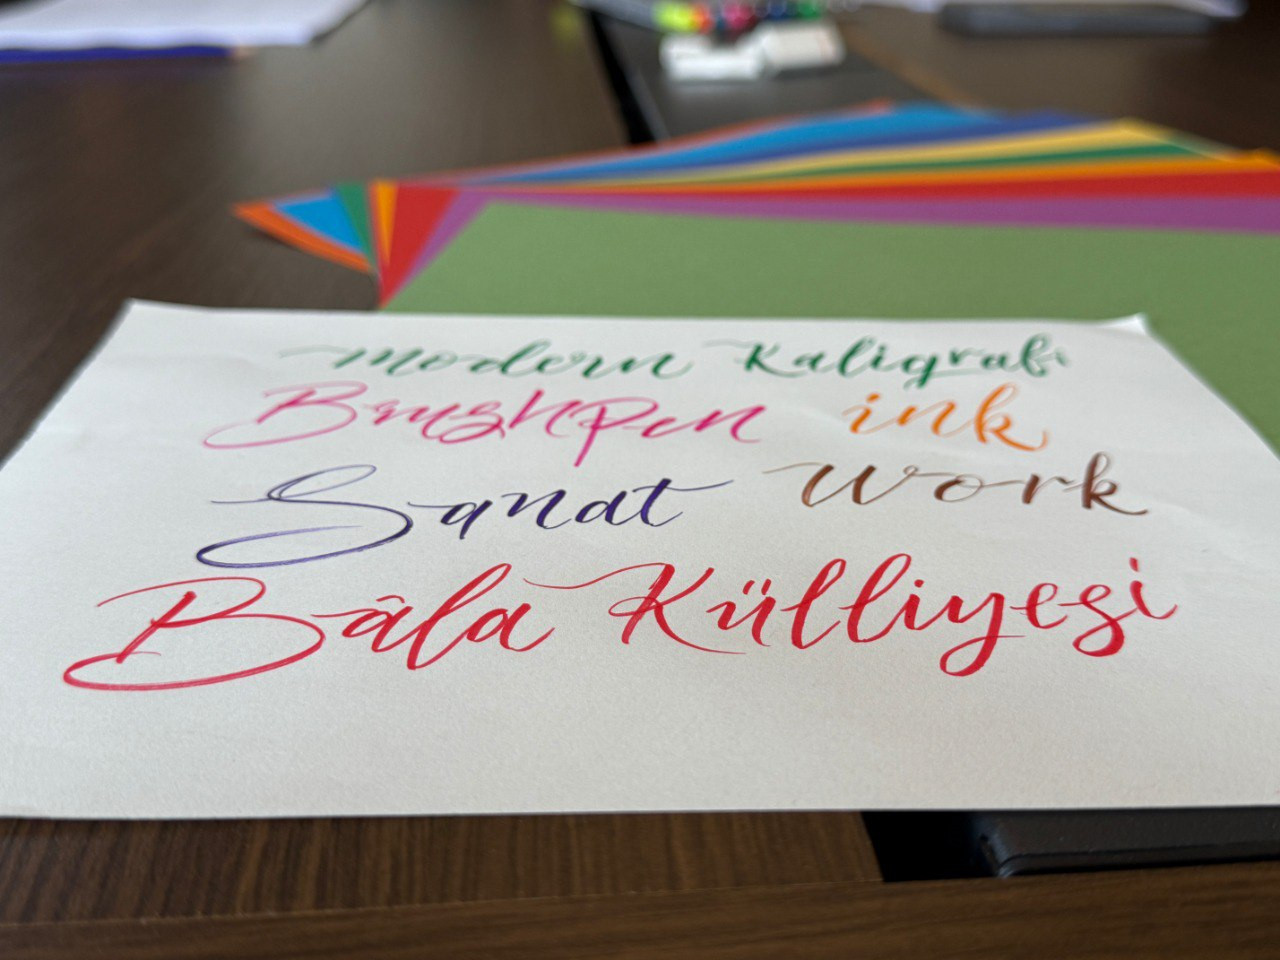 modern Kaligrafi
BrushPen ink
Sanat Work
Bâla Külliyesi